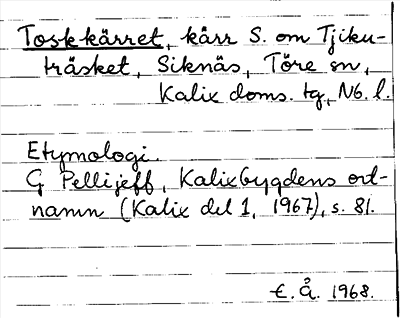 Toskkärret, kärr S. om Tjiku-
träsket, Siknäs, Töre sn,
Kalix doms. tg, Nb. l.
Etymologi.
G Pellijeff, Kalixbygdens ort-
namn (Kalix del 1, 1967), s. 81.
E. Å. 1968.